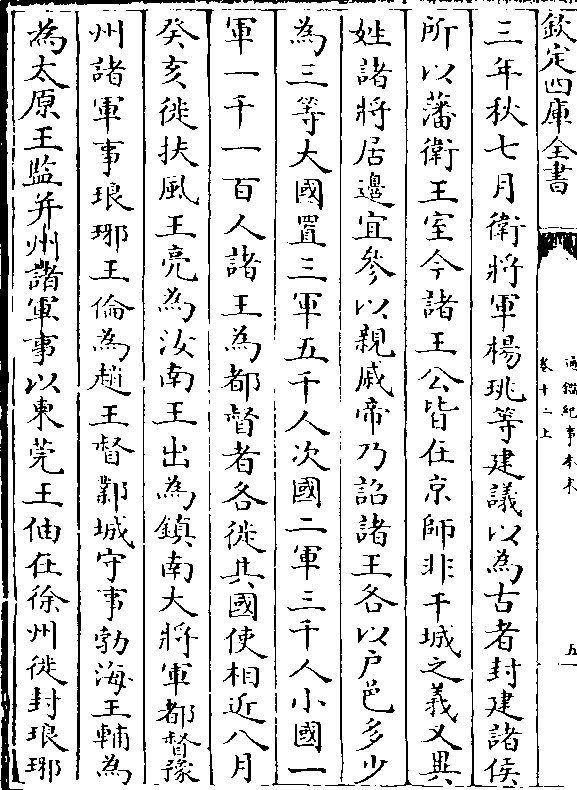 欽定四庫全書
通鑑紀事本末
卷十二上
五
三年秋七月衛將軍楊珧等建議以為古者封建諸侯
所以藩衛王室今諸王公皆在京師非干城之義又異
姓諸將居邊宜參以親戚帝乃詔諸王各以户邑多少
為三等大國置三軍五千人次國二軍三千人小國一
軍一千一百人諸王為都督者各徙其國使相近八月
癸亥徙扶風王亮為汝南王出為鎮南大將軍都督豫
州諸軍事琅邪王倫為趙王督鄴城守事勃海王輔為
為太原王監并州諸軍事以東莞王伷在徐州徙封琅邪